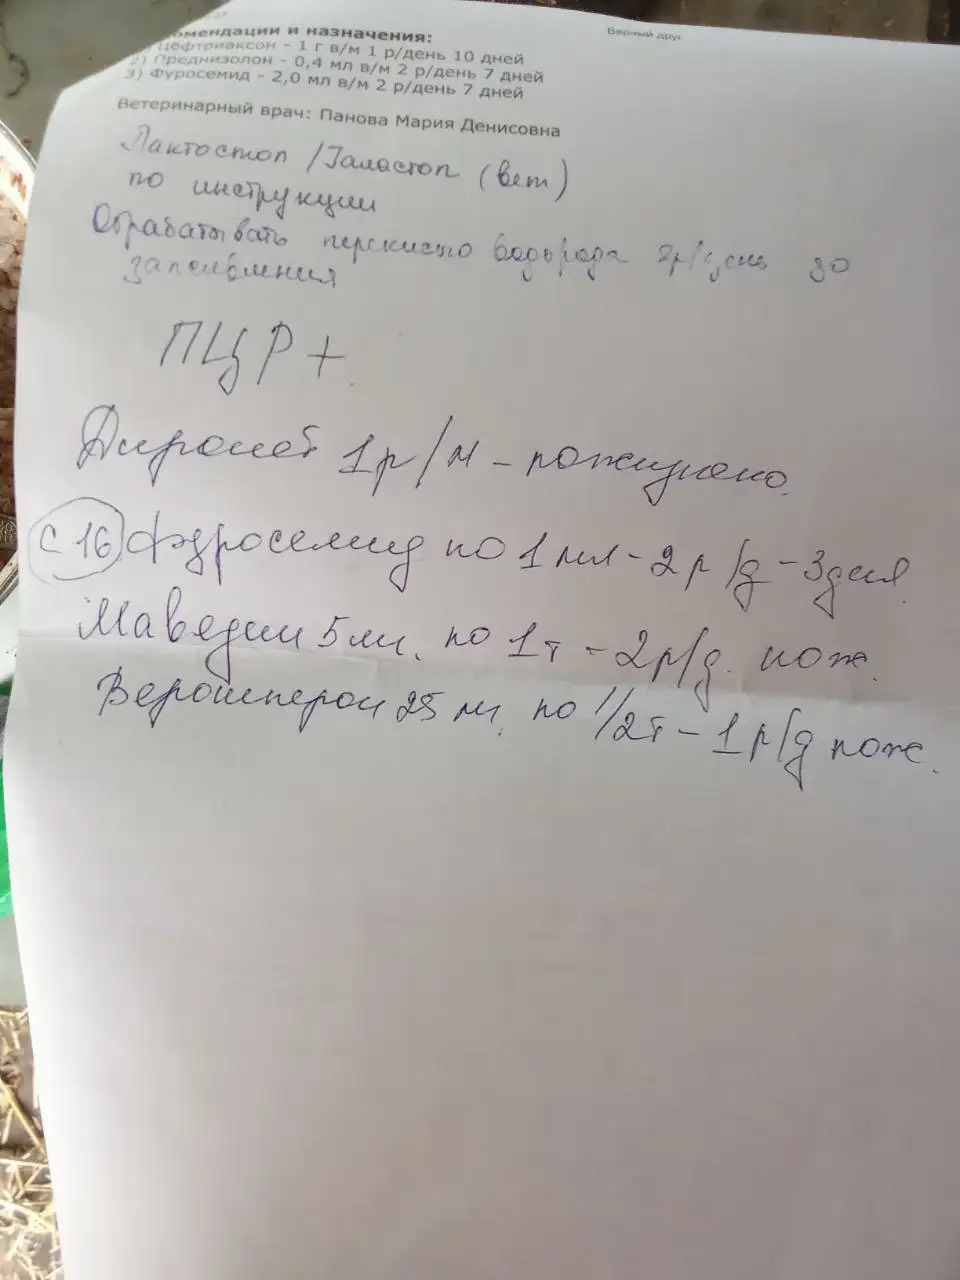 Верный друг
омендации и назначения:
Цефтриаксон - 1 г в/м 1 р/день 10 дней
2) Преднизолон - 0,4 мл в/м 2 р/день 7 дней
3) Фуросемид - 2,0 мл в/м 2 р/день 7 дней
Ветеринарный врач: Панова Мария Денисовна
Лактостоп / Галастоп (вет)
по инструкции
Обрабатывать перекисью водорода 2р/день до
заживления
ПЦР +
1р/м - пожизнено.
с 16 Фуросемид по 1 мл - 2р/д - 3 дня.
Паведин 5 мг. по 1т - 2р/д. пож.
Верошперон 25 мг. по 1/2т - 1р/д пож.